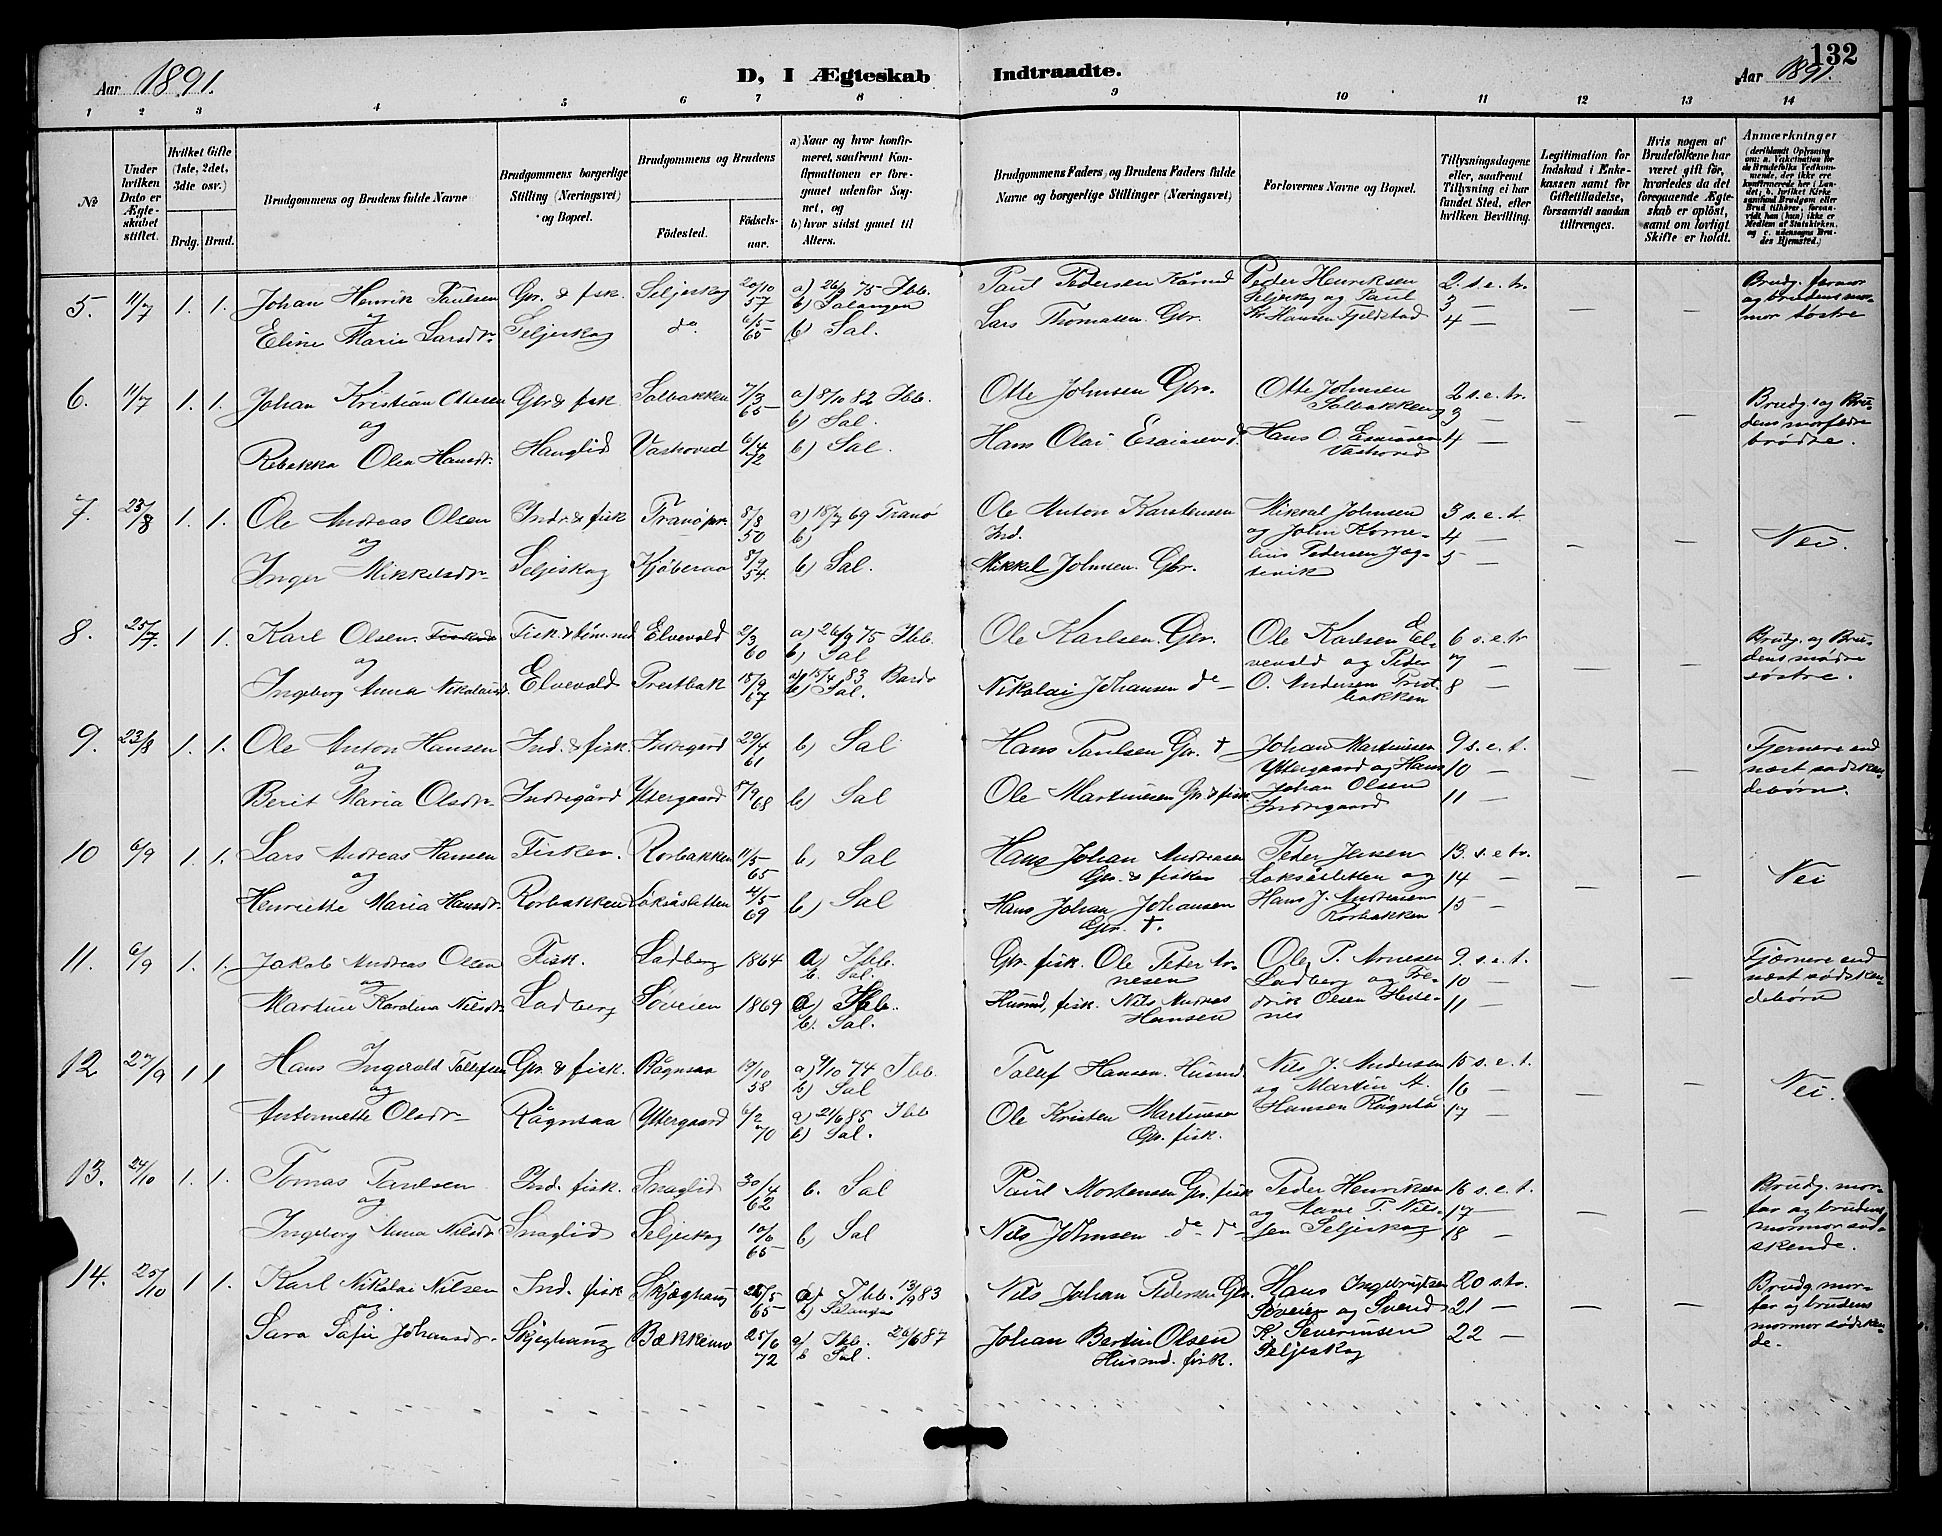 132
Aar 1891.
D, I Ægteskab Indtraadte.
Aar 1891.
1 2 3 4 5 6 7 8 9 10 11 12 13 14
No
Under hvilken Dato er Ægteskabet stiftet.
Hvilket Gifte (1ste, 2det, 3die osv.)
Brdg. Brud.
Brudgommens og Brudens fulde Navne
Brudgommens borgerlige Stilling (Næringsvei) og Bopæl.
Brudgommens og Brudens
Födested.
Födselsaar.
a) Naar og hvor konfirmeret, saafremt Konfirmationen er foregaaet udenfor Sognet, og
b) hvor sidst gaaet til Alters.
Brudgommens Faders, og Brudens Faders fulde Navne og borgerlige Stillinger (Næringsvei)
Forlovernes Navne og Bopæl.
Tillysningsdagene eller, saafremt Tillysning ei har fundet Sted, efter hvilken Bevilling.
Legitimation for Indskud i Enkekassen samt for Giftetilladelse, forsaavidt saadan tiltrænges.
Hvis nogen af Brudefolkene har været gift för, hvorledes da det foregaaende Ægteskab er oplöst, samt om lovligt Skifte er holdt.
Anmærkninger (deriblandt Oplysning om: a. Vakcination for de Brudefolks Vedkommende, der ikke ere konfirmerede her i Landet; b. hvilket Kirkesamfund Brudgom eller Brud tilhörer, forsaavidt han (hun) ikke er Medlem af Statskirken, og c. udensogns Brudes Hjemsted.)
5. 11/7 1. 1. Johan Henrik Paulsen Gbr. & fisk. Seljeskog 20/10 57 a) 26/9 75 Ibb. b) Salangen Paul Pedersen Peder Henriksen 2. s. e. tr.
og Seljeskog og Paul 3 —
Eline Marie Larsdr. Seljeskog do 6/5 65 b) Sal. Lars Thomasen Gbr. Hansen Fjeldstad 4 —
— — Brudg. farmor og brudens mormor søstre
6. 11/7 1. 1. Johan Kristian Ottesen Gbr & fisk Salbakken 7/3 65 a) 8/10 82 Ibb. b) Sal. Otte Johnsen Gbr. Otte Johnsen Salbakken 2 s. e. tr.
og 3 —
Rebekka Olea Hansdr. Hanglid Vashoved 6/4 72 b) Sal. Hans Olai Esaiasen Hans O. Esaiasen Vashoved 4 —
— — Brudg. og Brudens morfedre brødre.
7. 23/8 1. 1. Ole Andreas Olsen Indr & fisk Tranø 8/8 50 a) 18/7 69 Tranø b) Ole Anton Karstensen Ind. Mikkel Johnsen 3 s. e. t.
og og John Kornelius 4 —
Inger Mikkelsdr. Seljeskog Kjøberaa 8/9 54. b) Sal. Mikkel Johnsen. Gbr. Pedersen Jogtevik 5 —
— — Nei.
8. 25/7. 1 1. Karl Olsen. Fisk. Elvevold 2/3 60 a) 26/9 75 Ibb. b) Sal Ole Karlsen. Gbr. Ole Karlsen Elvevold 6 s. e. tr
og og Peder 7 —
Ingeborg Anna Nikolaisd. Elvevold Prestbak 18/9 67 a) 15/4 83 Bardo b) Sal. Nikolai Johansen do — O. Andersen Prestbakken 8 —
— — Brudg. og Brudens mødre søstre.
9. 23/8 1. 1. Ole Anton Hansen Ind. & fisk. Indregard 29/4 61 b) Sal Hans Paulsen Gbr. † Johan Martinesen 9 s. e. t.
og Yttergaard og Hans 10 —
Berit Maria Olsdr. Indregård Yttergaard 8/9 68 b) Sal Ole Martinesen Gbr & fisk Johan Olsen Indregaard 11 —
— — Fjernere end næst sødskendebørn.
10 6/9 1. 1. Lars Andreas Hansen Fisker. Rorbakken 11/5 65 b) Sal Hans Johan Andreasen Gbr. & fisker Peder Jensen 13. s. e tr.
og Løksåsletten og 14 —
Henriette Maria Hansdr. Rorbakken Løksåsletten 4/5 69 b) Sal Hans Johan Johansen Gbr. †. Hans J. Andreasen Rorbakken 15 —
— — Nei
11. 6/9 1. 1. Jakob Andreas Olsen Fisk. Ladberg 1864 a) Ibb. b. Sal. Gbr. fisk. Ole Peter Arnesen Ole P. Arnesen 9. s. e. t.
og Ladberg og Fredrik 10 —
Martine Karolina Nilsdr. Ladberg Søveien 1869 a) Ibb. b. Sal. Husmd, fisk. Nils Andreas Hansen Olsen 11 —
— — Fjærnere end næst sødskendebørn
12 27/9 1 1 Hans Ingvald Tollefsen Gbr. & fisk. Rågnsaa 19/10 58 a) 9/10 74 Ibb. b) Sal Tollef Hansen. Husmd. Nils J. Andersen 15 s. e. t.
og og Martin A. 16 —
Antonnette Olsdr. Rågnsaa Yttergaard 6/2 70 a) 21/6 85 Ibb b) Sal. Ole Kristen Martinesen Gbr. fisk. Hansen Rågnså 17 —
— — Nei.
13. 24/10 1. 1. Tomas Paulsen Ind. fisk. Snaglid 30/4 62 b. Sal Paul Mortensen Gbr. fisk Peder Henriksen 16 s. e. t.
og og Aane P. Nilssen 17 —
Ingeborg Anna Nilsdr Snaglid Seljeskog 10/10 65 b) Sal Nils Johnsen do do Seljeskog 18 —
— — Brudg. morfar og brudens mormor sødskende.
14. 25/10 1 1. Karl Nikolai Nilsen Ind. fisk Skjæghaug 28/5 65 a) Ibb. 13/9 83 b) Salangen Nils Johan Pedersen Gbr. Hans Ingebrigtsen 20 s. tr.
og Søveien og Svend 21 —
Sara Sofie Johansdr. Skjæghaug Bækkemo 25/6 72 a) Ibb. 26/6 87 b Sal. Johan Bertin Olsen Husmd. fisk. K. Severinsen Seljeskog 22 —
— — Brudg. morfar og brudens mormor sødskende.